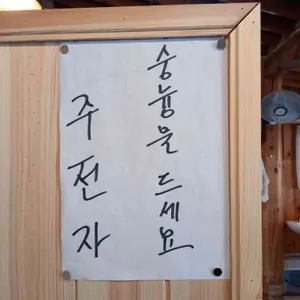 숭늉물 드세요
주전자